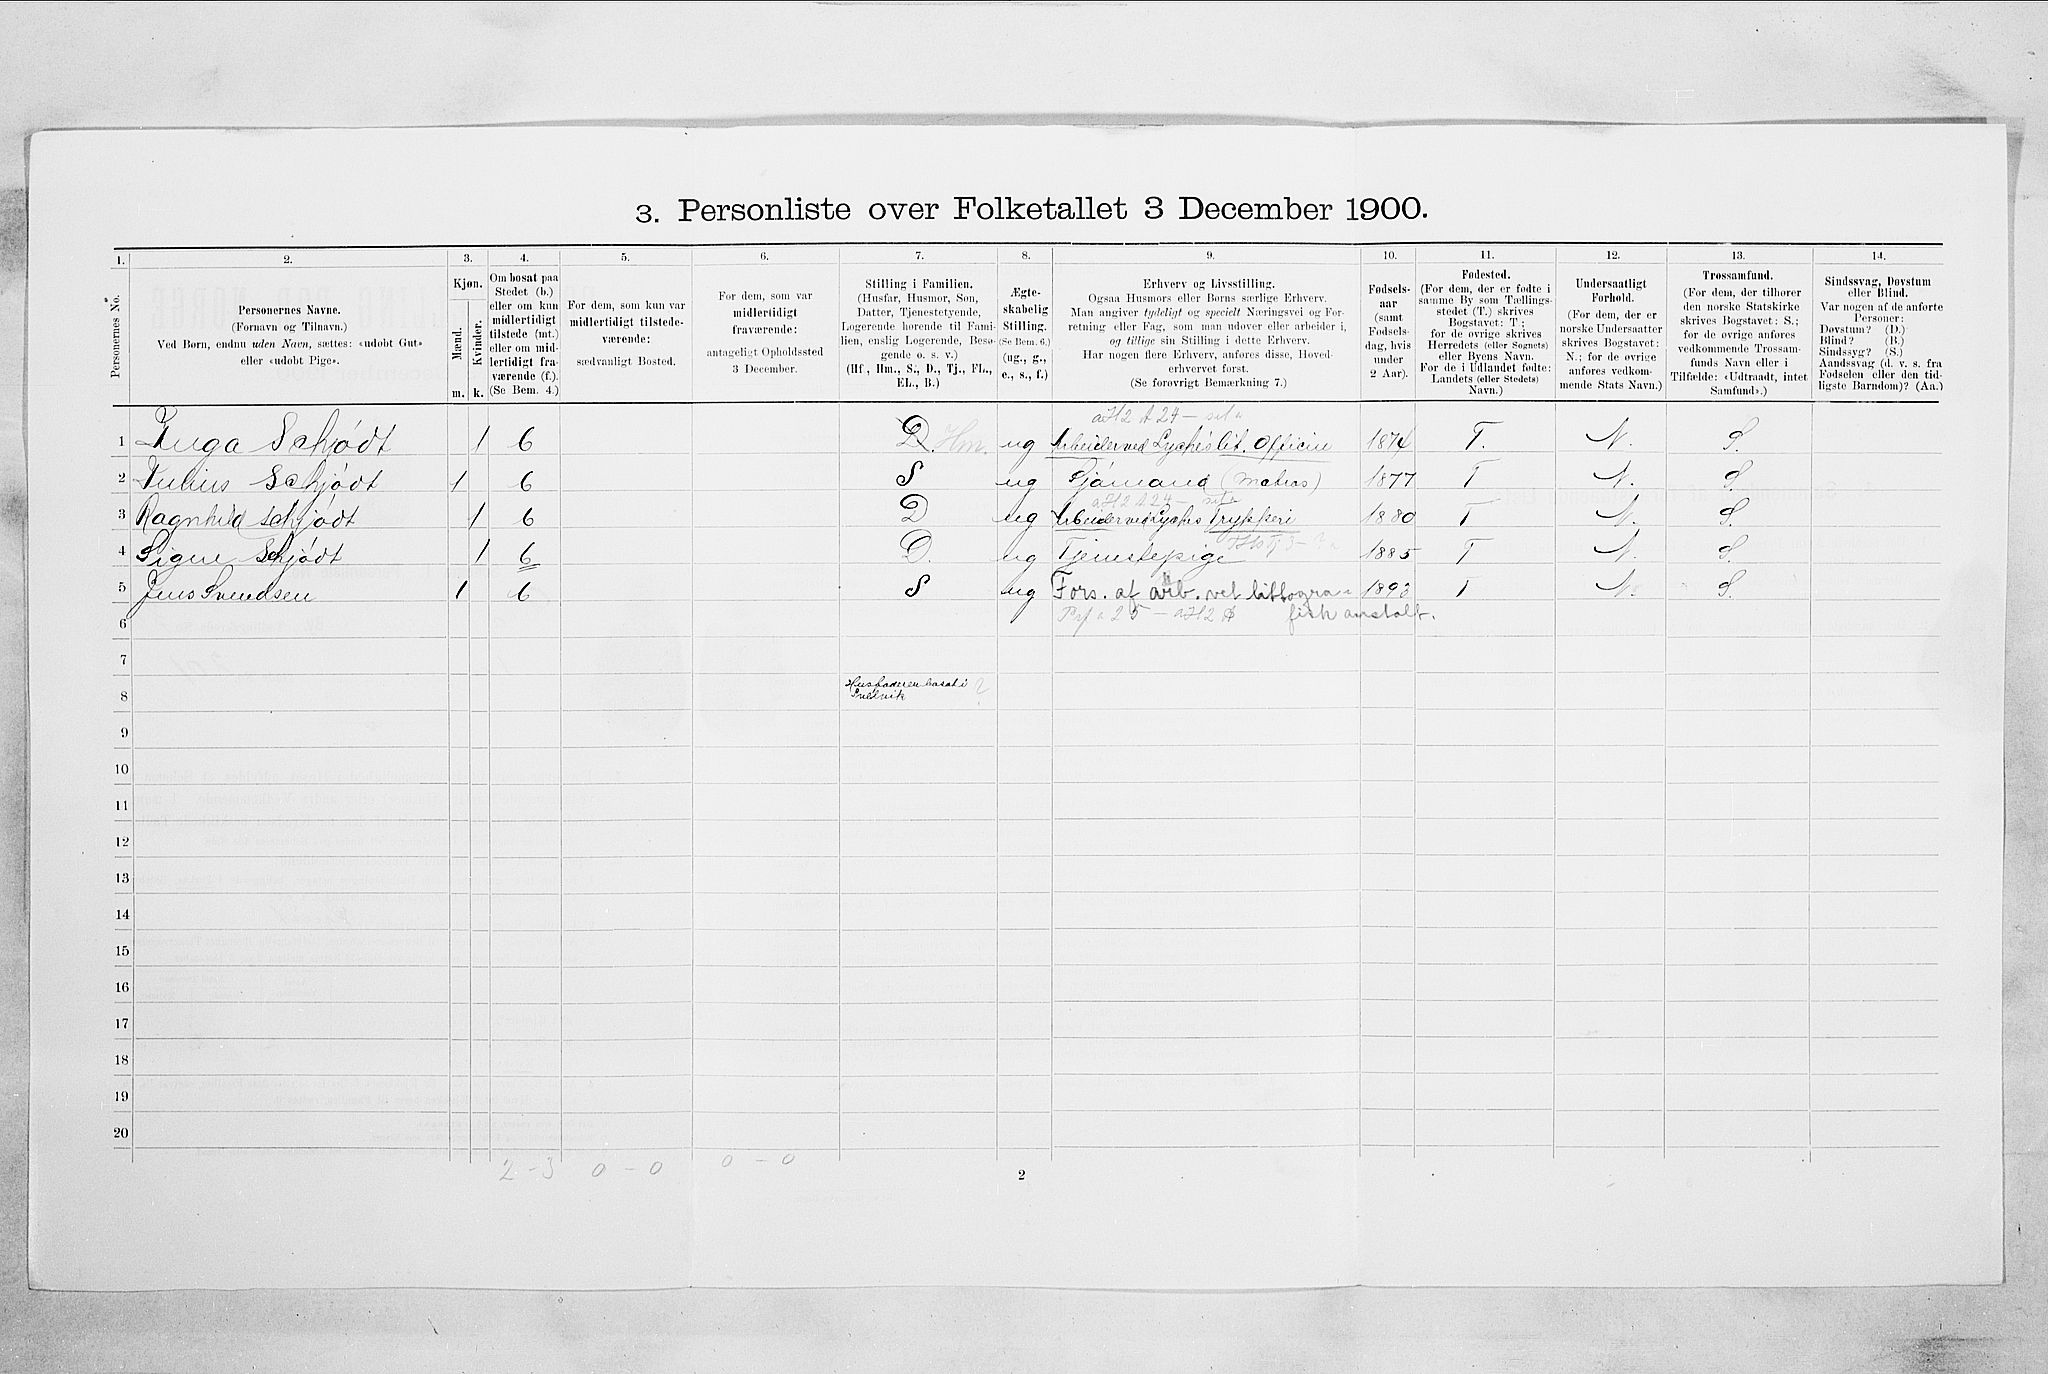 3. Personliste over Folketallet 3 December 1900.
1. 2. 3. 4. 5. 6. 7. 8. 9. 10. 11. 12. 13. 14.
Personernes No.
Personernes Navne.
(Fornavn og Tilnavn.)
Ved Børn, endnu uden Navn, sættes: «udobt Gut»
eller «udobt Pige».
Kjøn.
Mænd.
Kvinder.
m. k.
Om bosat paa
Stedet (b.)
eller om kun
midlertidigt
tilstede (mt.)
eller om mid-
lertidigt fra-
værende (f.).
(Se Bem. 4.)
For dem, som kun var
midlertidigt tilstede-
værende:
sædvanligt Bosted.
For dem, som var
midlertidigt
fraværende:
antageligt Opholdssted
3 December.
Stilling i Familien.
(Husfar, Husmor, Søn,
Datter, Tjenestetyende,
Logerende hørende til Fami-
lien, enslig Logerende, Besø-
gende o. s. v.)
(Hf., Hm., S., D., Tj., FL.,
EL., B.)
Ægte-
skabelig
Stilling.
(Se Bem. 6.)
(ug., g.,
e., s., f.)
Erhverv og Livsstilling.
Ogsaa Husmors eller Børns særlige Erhverv.
Man angiver tydeligt og specielt Næringsvei og For-
retning eller Fag, som man udøver eller arbeider i,
og tillige sin Stilling i dette Erhverv.
Har nogen flere Erhverv, anføres disse, Hoved-
erhvervet først.
(Se forøvrigt Bemærkning 7.)
Fødsels-
aar
(samt
Fødsels-
dag, hvis
under
2 Aar).
Fødested.
(For dem, der er fødte i
samme By som Tællings-
stedet (T.) skrives
Bogstavet: T.;
for de øvrige skrives
Herredets (eller Sognets)
eller Byens Navn.
For de i Udlandet fødte:
Landets (eller Stedets)
Navn.)
Undersaatligt
Forhold.
(For dem, der er
norske Undersaatter
skrives Bogstavet:
N.; for de øvrige
anføres vedkom-
mende Stats Navn.)
Trossamfund.
(For dem, der tilhører
den norske Statskirke
skrives Bogstavet: S.;
for de øvrige anføres
vedkommende Trossam-
funds Navn eller i
Tilfælde: «Udtraadt, intet
Samfund».)
Sindssvag, Døvstum
eller Blind.
Var nogen af de anførte
Personer:
Døvstum? (D.)
Blind? (B.)
Sindssyg? (S.)
Aandssvag (d. v. s. fra
Fødselen eller den tid-
ligste Barndom)? (Aa.)
1 Inga Schjødt 1 6 D. Hm. ug Arbeider ved Lyches lit. Officin 1874 T. N. S.
2 Julius Schjødt 1 6 S ug Sjømand (Matros) 1877 T N. S.
3 Ragnhild Schjødt 1 6 D ug Arbeider ved Lyches Trykkeri 1880 T N. S.
4 Signe Schjødt 1 6 D. ug Tjenestepige 1885 T N. S.
5 Jens Svendsen 1 6 S ug Fors. af arb. vet littogra- 1893 T N. S.
6 fisk anstalt.
7
8 Husfaderen bosat i
Svelvik ?
9
10
11
12
13
14
15
16
17
18
19
20
2 - 3 0 - 0 0 - 0
2